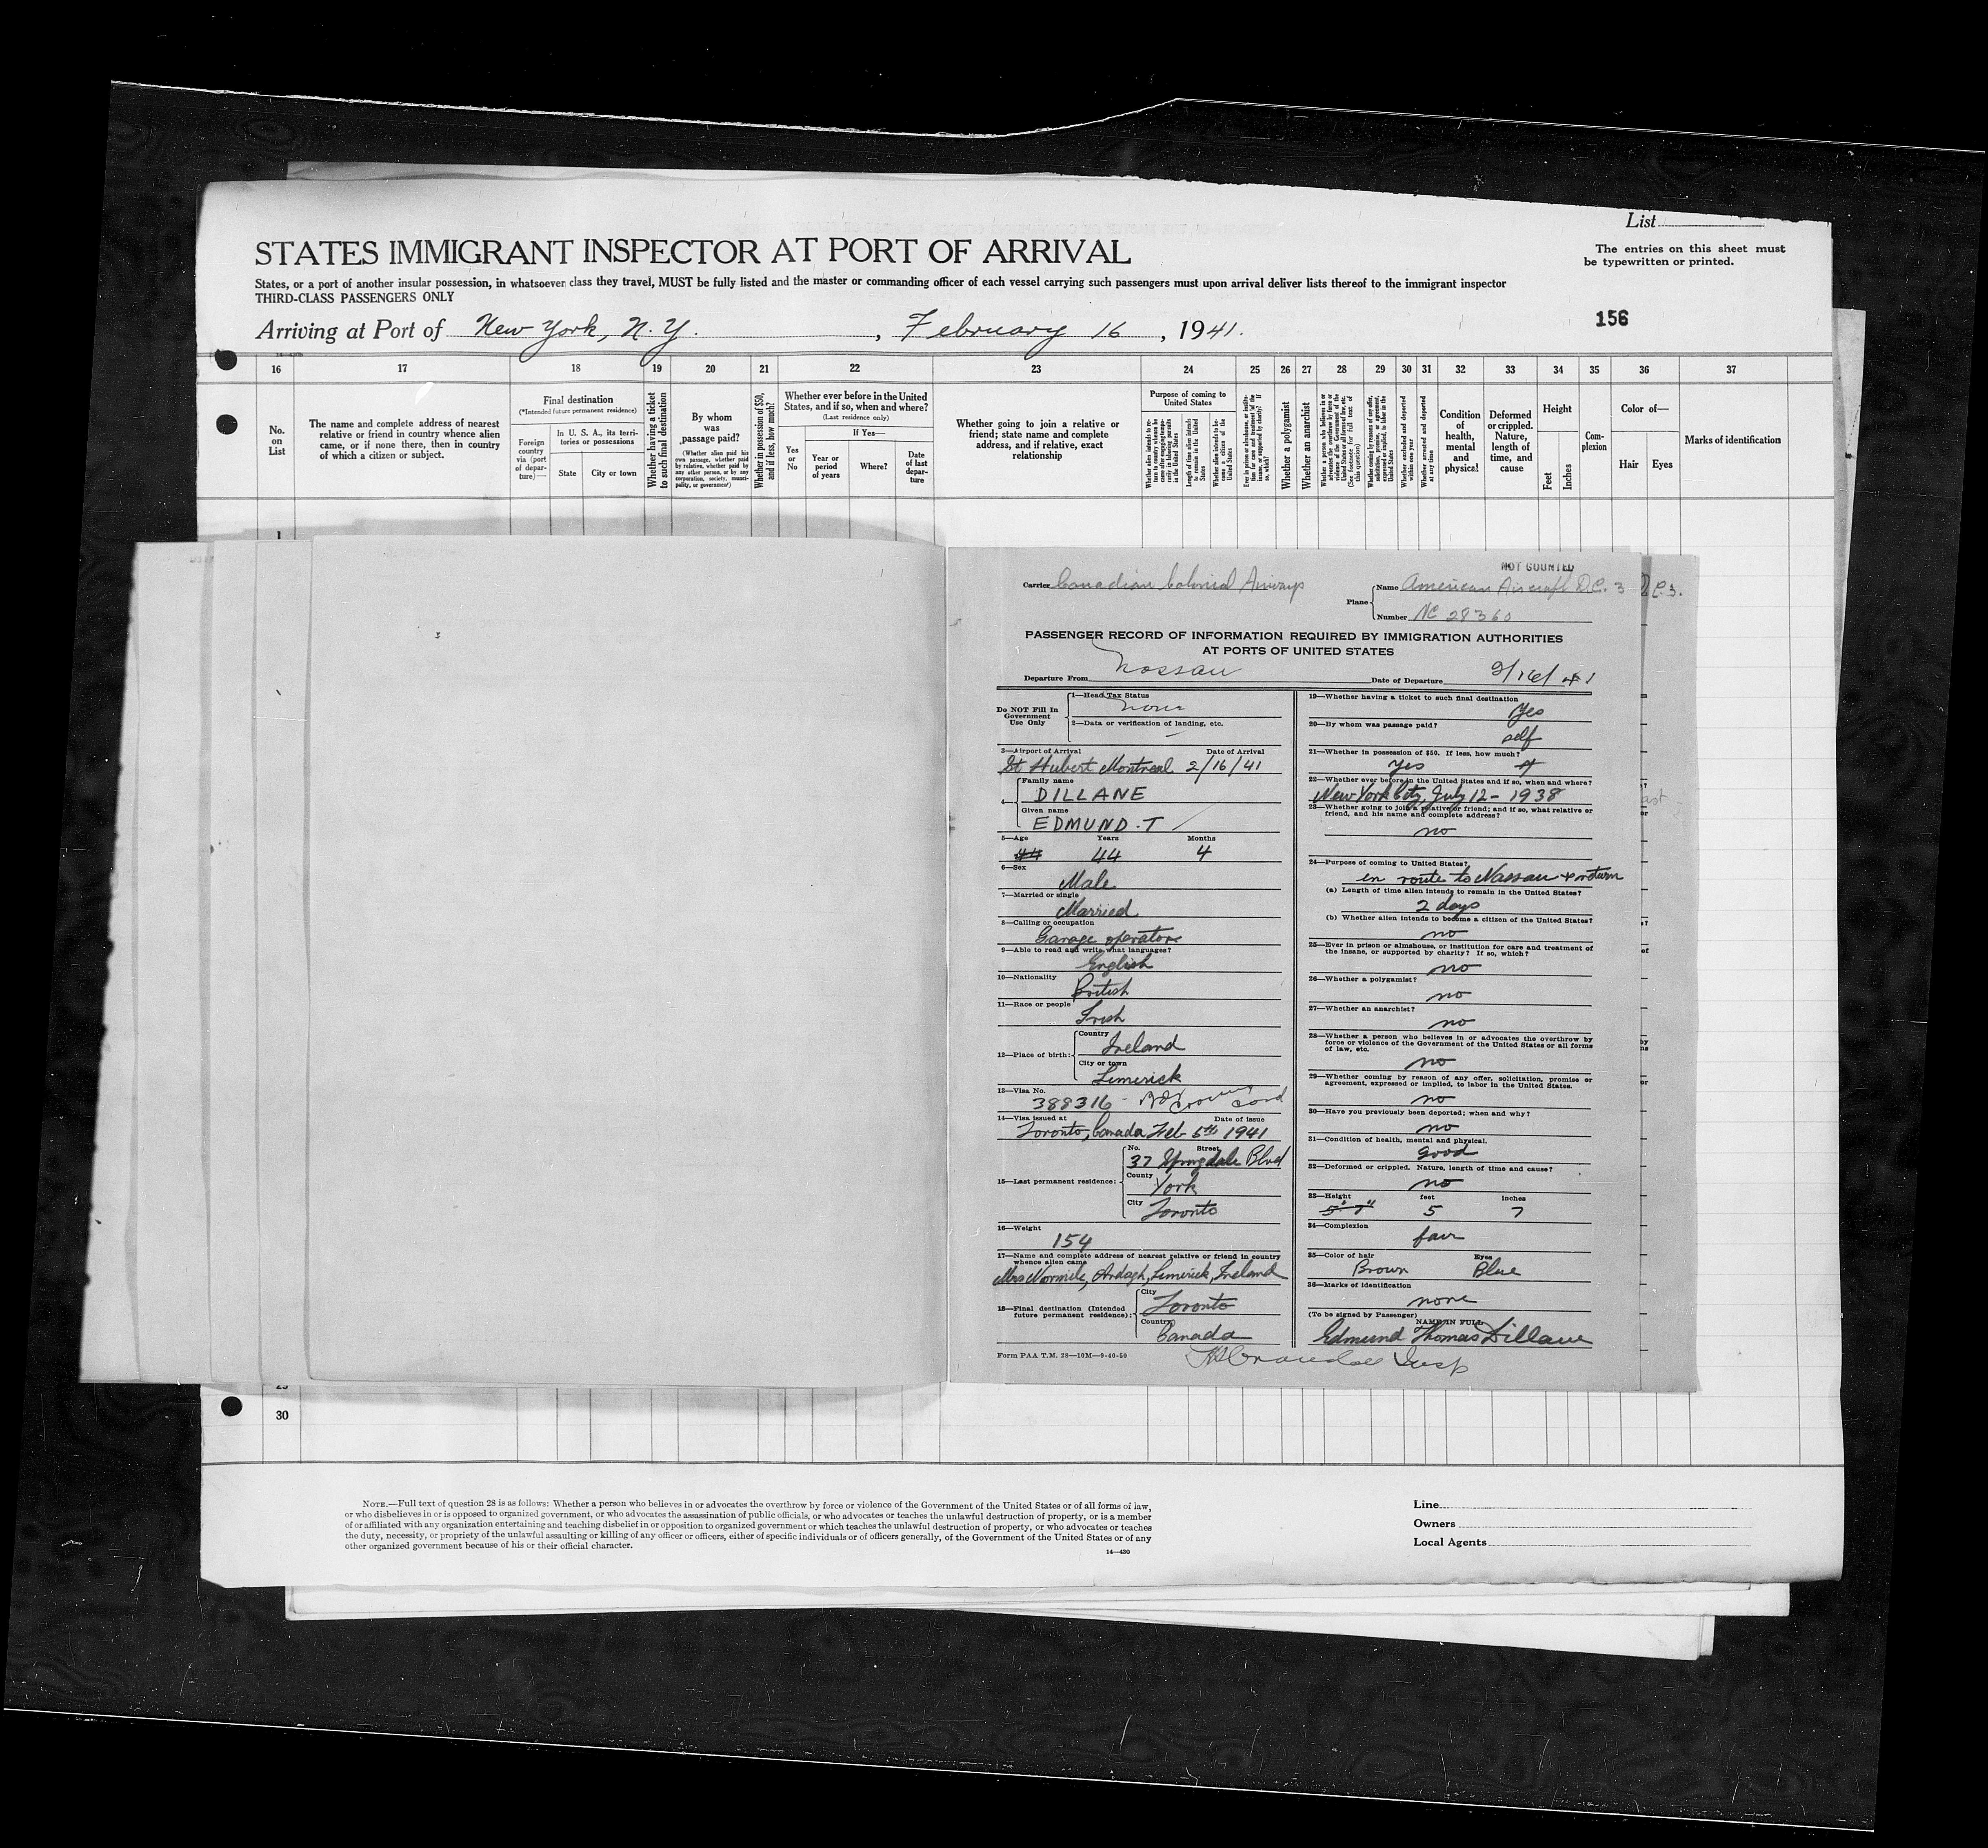 List
STATES IMMIGRANT INSPECTOR AT PORT OF ARRIVAL
The entries on this sheet must
be typewritten or printed.
States, or a port of another insular possession, in whatsoever class they travel, MUST be fully listed and the master or commanding officer of each vessel carrying such passengers must upon arrival deliver lists thereof to the immigrant inspector
THIRD-CLASS PASSENGERS ONLY
156
Arriving at Port of New York, N. Y. , February 16 , 1941.
16 17 18 19 20 21 22 23 24 25 26 27 28 29 30 31 32 33 34 35 36 37
No. on List
The name and complete address of nearest relative or friend in country whence alien came, or if none there, then in country of which a citizen or subject.
Final destination
(*Intended future permanent residence)
Foreign country via (port of departure)—
In U. S. A., its territories or possessions
State
City or town
Whether having a ticket to such final destination
By whom was passage paid?
(Whether alien paid his own passage, whether paid by relative, whether paid by any other person, or by any corporation, society, municipality, or government)
Whether in possession of $50, and if less, how much?
Whether ever before in the United States, and if so, when and where?
(Last residence only)
If Yes—
Yes or No
Year or period of years
Where?
Date of last departure
Whether going to join a relative or friend; state name and complete address, and if relative, exact relationship
Purpose of coming to United States
Length of time alien intends to remain in the United States
Whether alien intends to become a citizen of the United States
Whether a polygamist
Whether an anarchist
(See footnote for full text of this question)
Whether excluded and deported within one year
Whether arrested and deported at any time
Condition of health, mental and physical
Deformed or crippled. Nature, length of time, and cause
Height
Feet
Inches
Complexion
Color of—
Hair
Eyes
Marks of identification
1
NOT COUNTED
Carrier Canadian Colonial Airways
Plane Name American Aircraft D.C. 3
D.C. 3.
Number NC 28360
PASSENGER RECORD OF INFORMATION REQUIRED BY IMMIGRATION AUTHORITIES
AT PORTS OF UNITED STATES
Departure From Nassau Date of Departure 2/16/41
Do NOT Fill In Government Use Only
1—Head Tax Status
none
2—Data or verification of landing, etc.
3—Airport of Arrival Date of Arrival
St Hubert Montreal 2/16/41
4— Family name
DILLANE
Given name
EDMUND . T
5—Age Years Months
44 44 4
6—Sex
Male
7—Married or single
Married
8—Calling or occupation
Garage operator
9—Able to read and write what languages?
English
10—Nationality
British
11—Race or people
Irish
12—Place of birth: Country
Ireland
City or town
Limerick
13—Visa No.
388316
14—Visa issued at Date of issue
Toronto, Canada Feb 5th 1941
15—Last permanent residence: No. Street
37 Springdale Blvd
County
York
City
Toronto
16—Weight
154
17—Name and complete address of nearest relative or friend in country whence alien came
Mrs Normile, Ardagh, Limerick, Ireland
18—Final destination (Intended future permanent residence): City
Toronto
Country
Canada
Form PAA T.M. 28—10M—9-40-50
19—Whether having a ticket to such final destination
Yes
20—By whom was passage paid?
self
21—Whether in possession of $50. If less, how much?
yes
22—Whether ever before in the United States and if so, when and where?
New York City, July 12 - 1938
23—Whether going to join a relative or friend; and if so, what relative or friend, and his name and complete address?
no
24—Purpose of coming to United States?
en route to Nassau + return
(a) Length of time alien intends to remain in the United States?
2 days
(b) Whether alien intends to become a citizen of the United States?
no
25—Ever in prison or almshouse, or institution for care and treatment of the insane, or supported by charity? If so, which?
no
26—Whether a polygamist?
no
27—Whether an anarchist?
no
28—Whether a person who believes in or advocates the overthrow by force or violence of the Government of the United States or all forms of law, etc.
no
29—Whether coming by reason of any offer, solicitation, promise or agreement, expressed or implied, to labor in the United States.
no
30—Have you previously been deported; when and why?
no
31—Condition of health, mental and physical.
good
32—Deformed or crippled. Nature, length of time and cause?
no
33—Height feet inches
5' 7" 5 7
34—Complexion
fair
35—Color of hair Eyes
Brown Blue
36—Marks of identification
none
(To be signed by Passenger) NAME IN FULL
Edmund Thomas Dillane
Insp
30
NOTE.—Full text of question 28 is as follows: Whether a person who believes in or advocates the overthrow by force or violence of the Government of the United States or of all forms of law,
or who disbelieves in or is opposed to organized government, or who advocates the assassination of public officials, or who advocates or teaches the unlawful destruction of property, or is a member
of or affiliated with any organization entertaining and teaching disbelief in or opposition to organized government or which teaches the unlawful destruction of property, or who advocates or teaches
the duty, necessity, or propriety of the unlawful assaulting or killing of any officer or officers, either of specific individuals or of officers generally, of the Government of the United States or of any
other organized government because of his or their official character.
14—430
Line
Owners
Local Agents